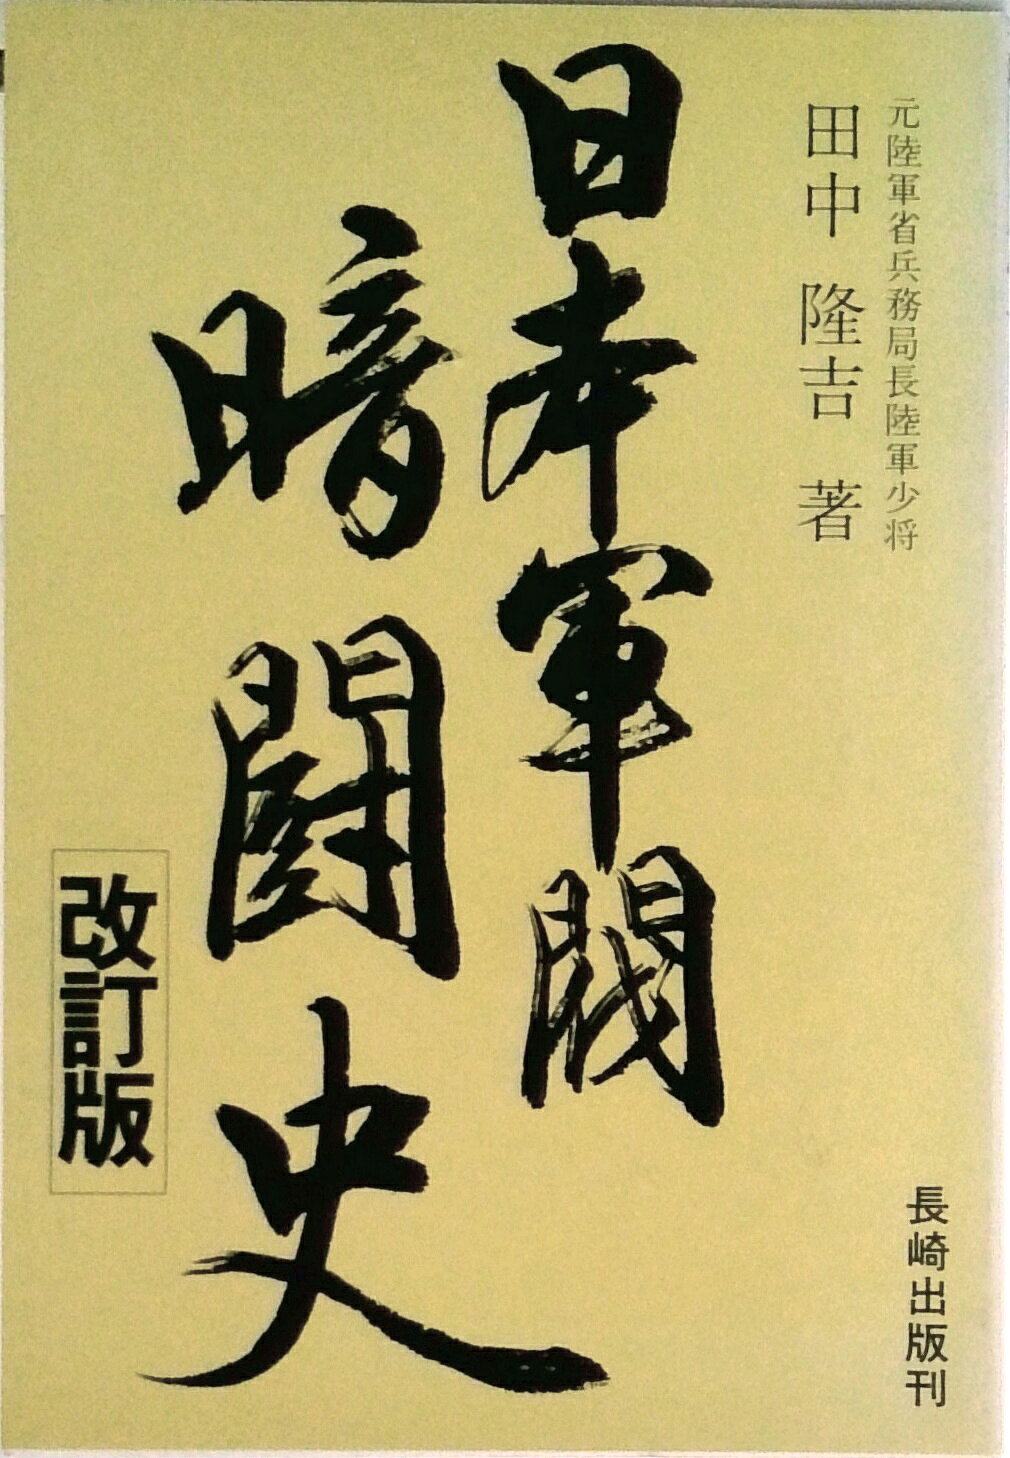 元陸軍省兵務局長陸軍少将
田中 隆吉 著
日本軍閥
暗闘史
改訂版
長崎出版刊